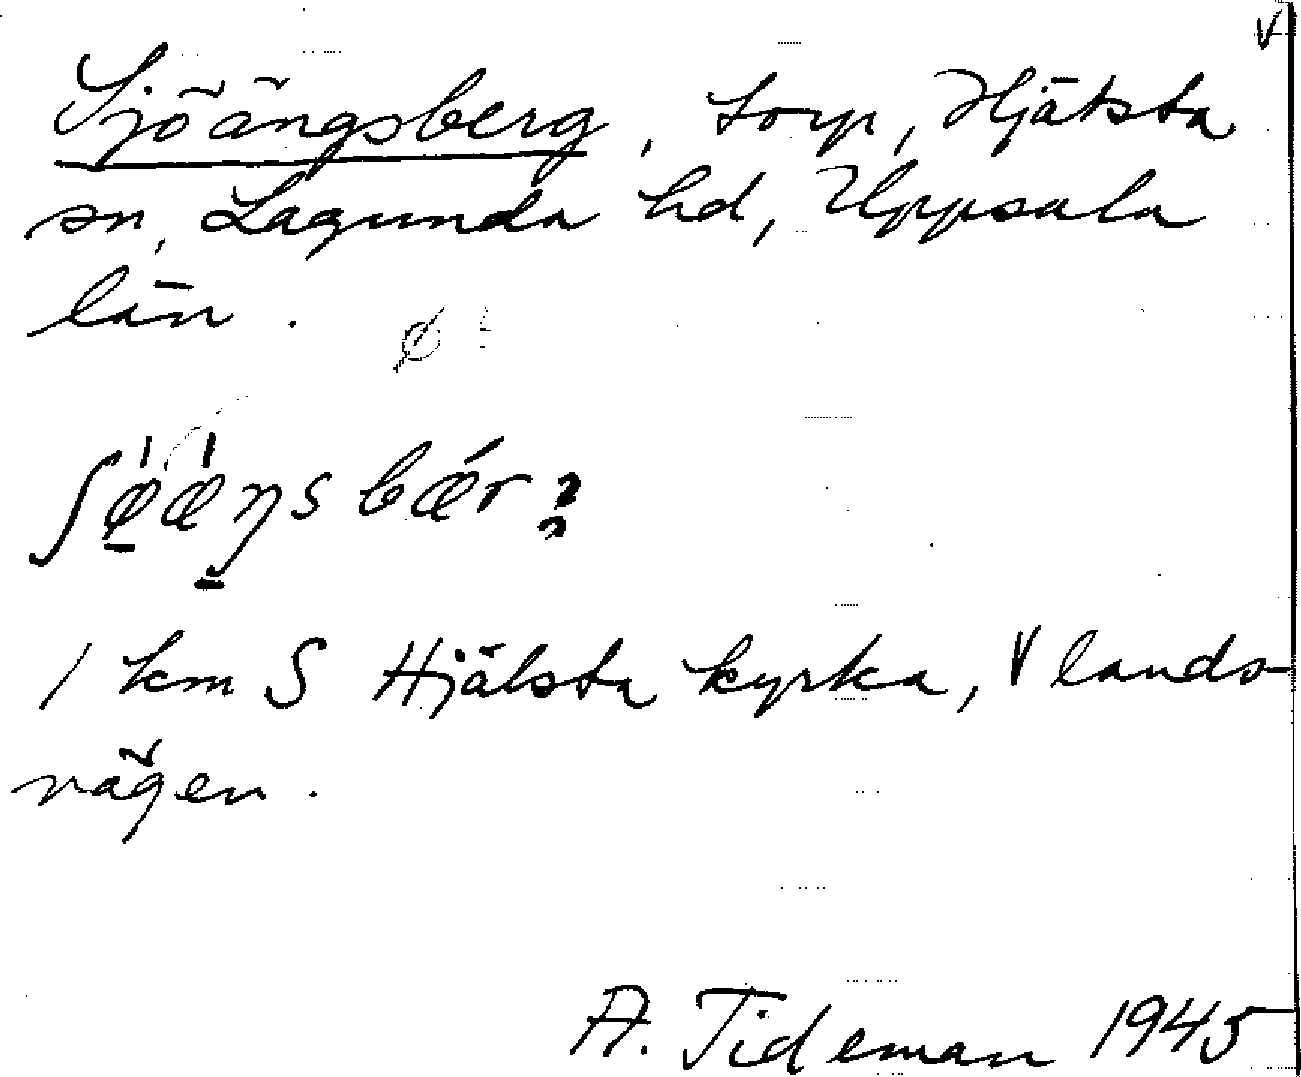 V
Sjöängsberg, torp, Hjälsta
sn, Lagunda hd, Uppsala
län.
1 km S Hjälsta kyrka, V lands-
vägen.
A. Tideman 1945